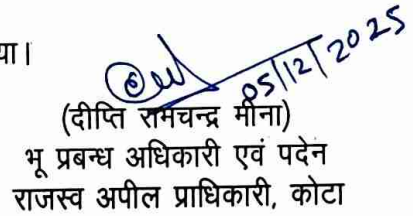 या।
05/12/2025
(दीप्ति रामचन्द्र मीना)
भू प्रबन्ध अधिकारी एवं पदेन
राजस्व अपील प्राधिकारी, कोटा